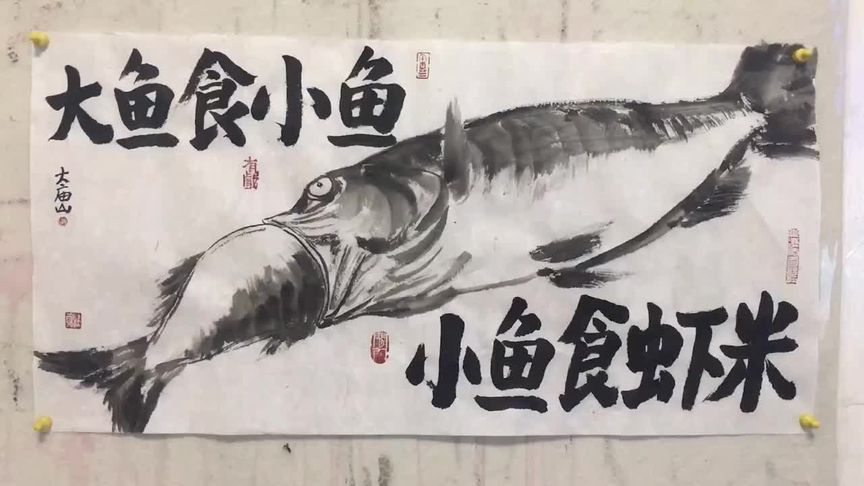 大鱼食小鱼
大庙山
小鱼食虾米